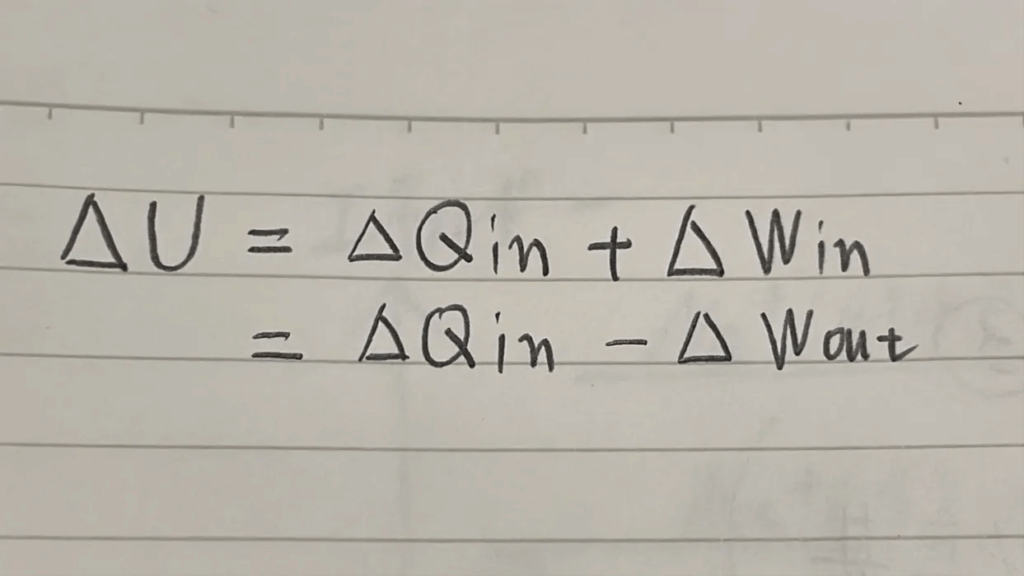 ΔU = ΔQin + ΔWin
= ΔQin − ΔWout